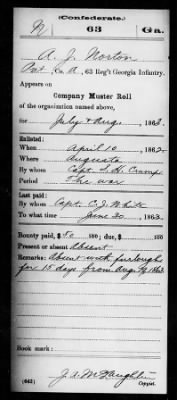 (Confederate.)
N 63 Ga.
A. J. Norton
Pvt, Co. A, 63 Reg't Georgia Infantry.
Appears on
Company Muster Roll
of the organization named above,
for July & Aug., 1863.
Enlisted:
When April 10, 1862
Where Augusta
By whom Capt. S. H. Crump
Period The war
Last paid:
By whom Capt. C. J. White
To what time June 30, 1863.
Bounty paid, $50 186 ; due, $ 186
Present or absent Absent
Remarks: Absent with furlough
for 15 days from Aug. 1863
Book mark:
J. A. McLaughlin
(642) Copyist.